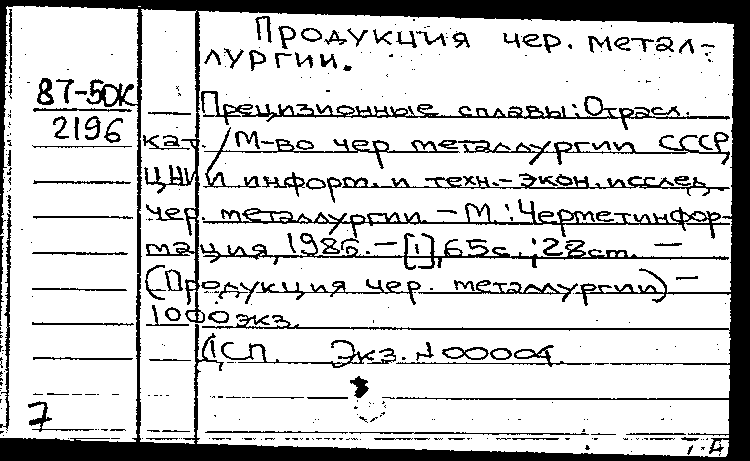 Продукция чер. метал-
лургии.
87-50К
2196
Прецизионные сплавы: Отрасл.
кат. / М-во чер металлургии СССР,
ЦНИИ информ. и техн.-экон. исслед.
чер. металлургии. – М.: Черметинфор-
мация, 1986. – [1], 65с.; 28см. –
(Продукция чер. металлургии) –
1000экз.
ДСП. Экз. N 00004.
7